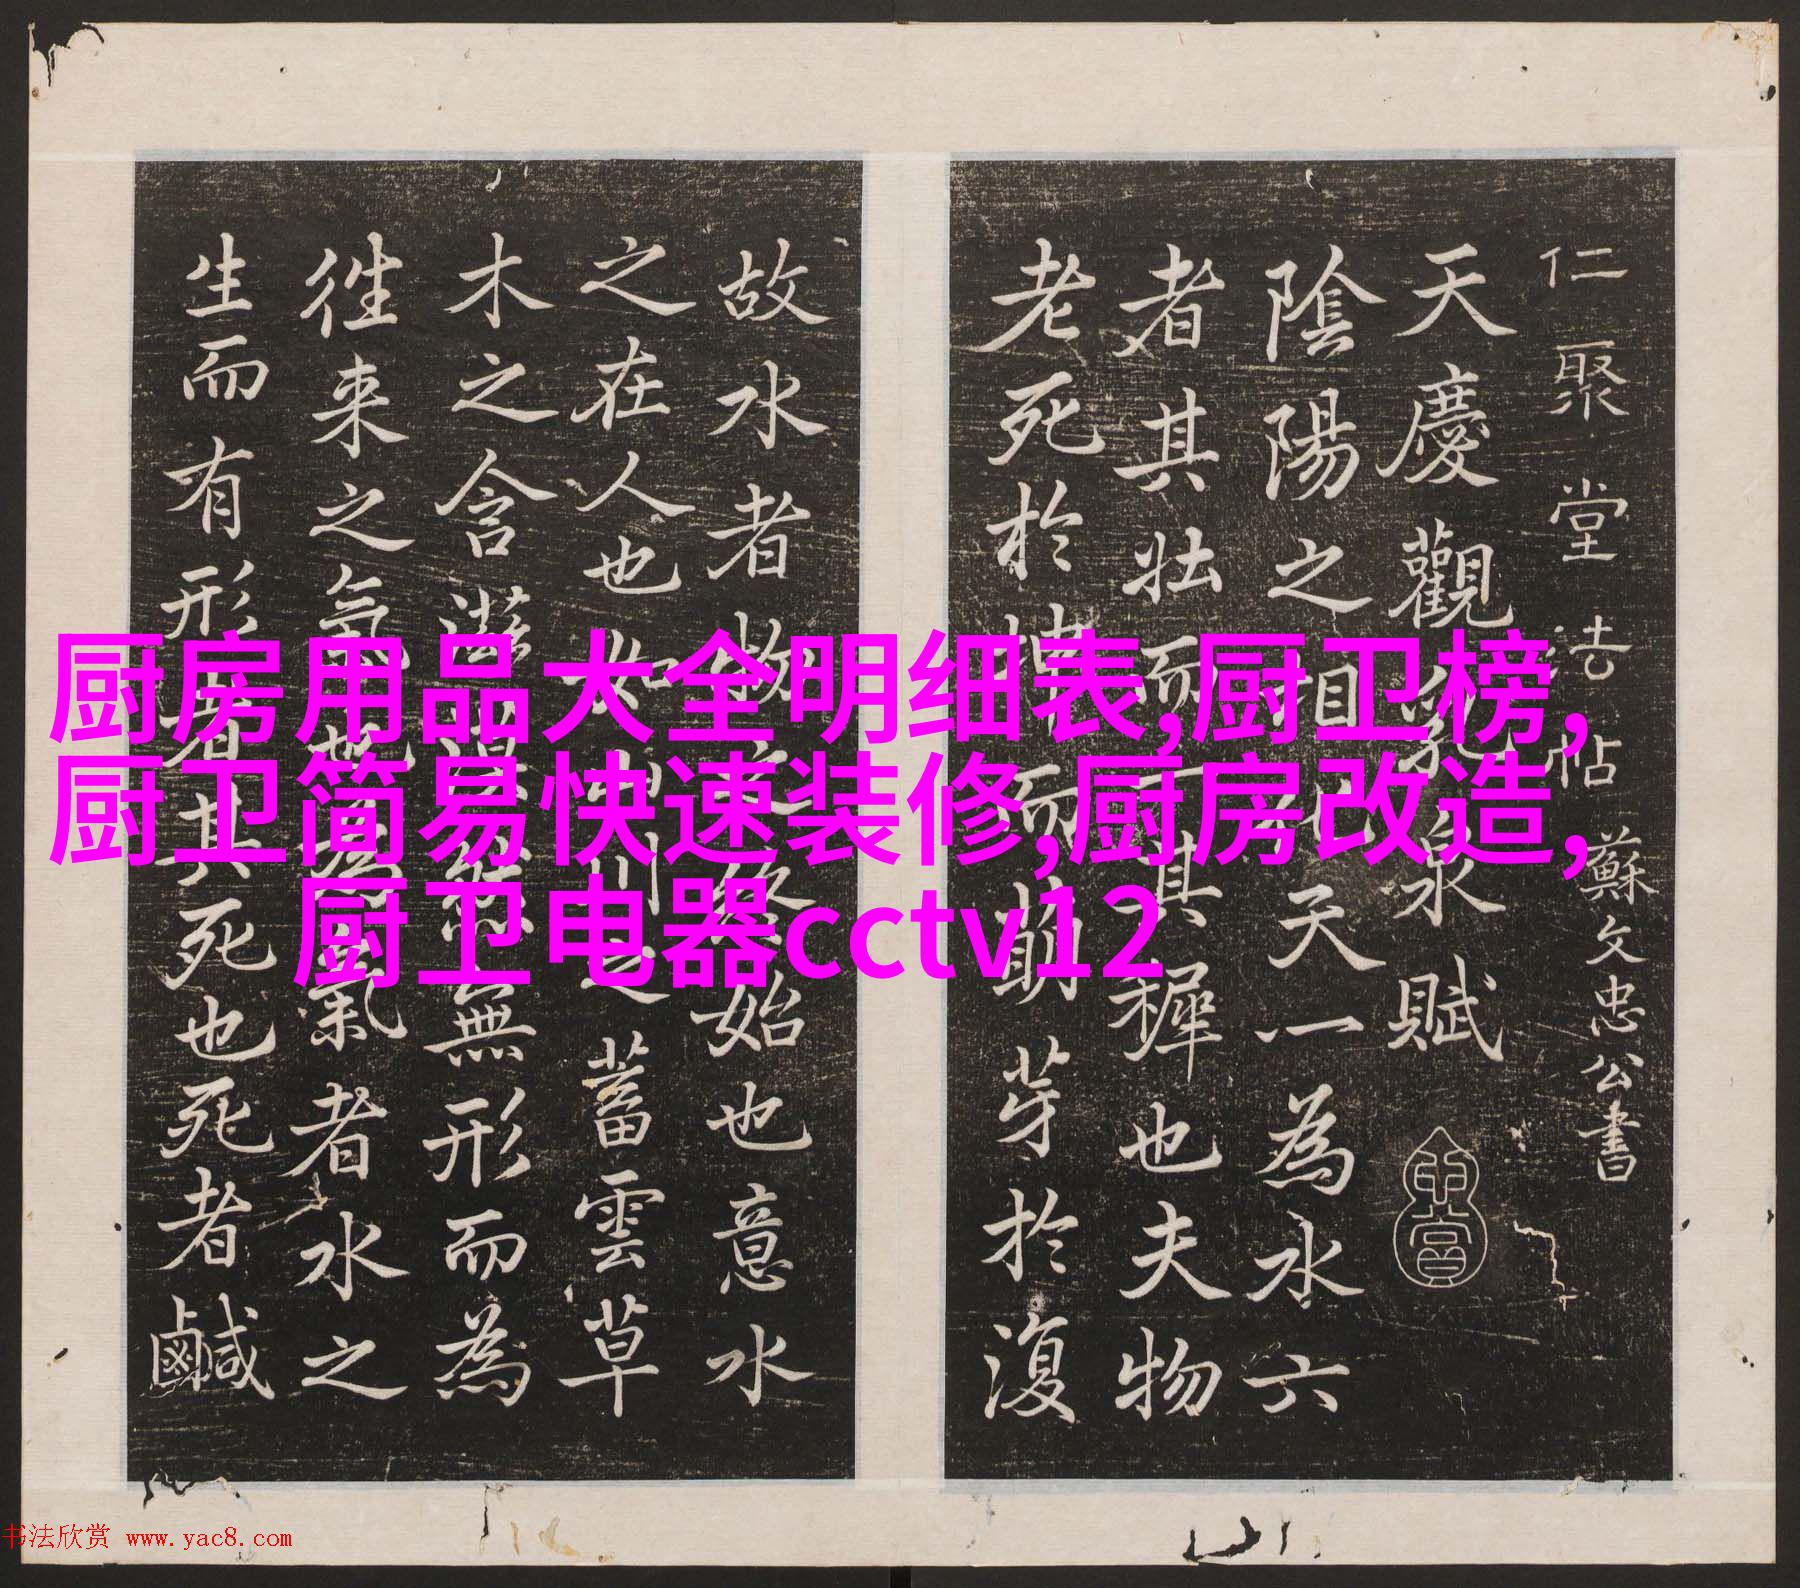 仁聚堂法帖 蘇文忠公書
天慶觀乳泉賦
陰陽之相化天一為水六
者其壯而其稺也夫物
老死於而萌芽於復
故水者物之終始也意水
之在人也如山川之蓄雲草
木之含滋漠然無形而為
徃来之氣也為氣者水之
生而有形者其死也死者鹹
厨房用品大全明细表,厨卫榜,
厨卫简易快速装修,厨房改造,
厨卫电器cctv12
书法欣赏 www.yac8.com